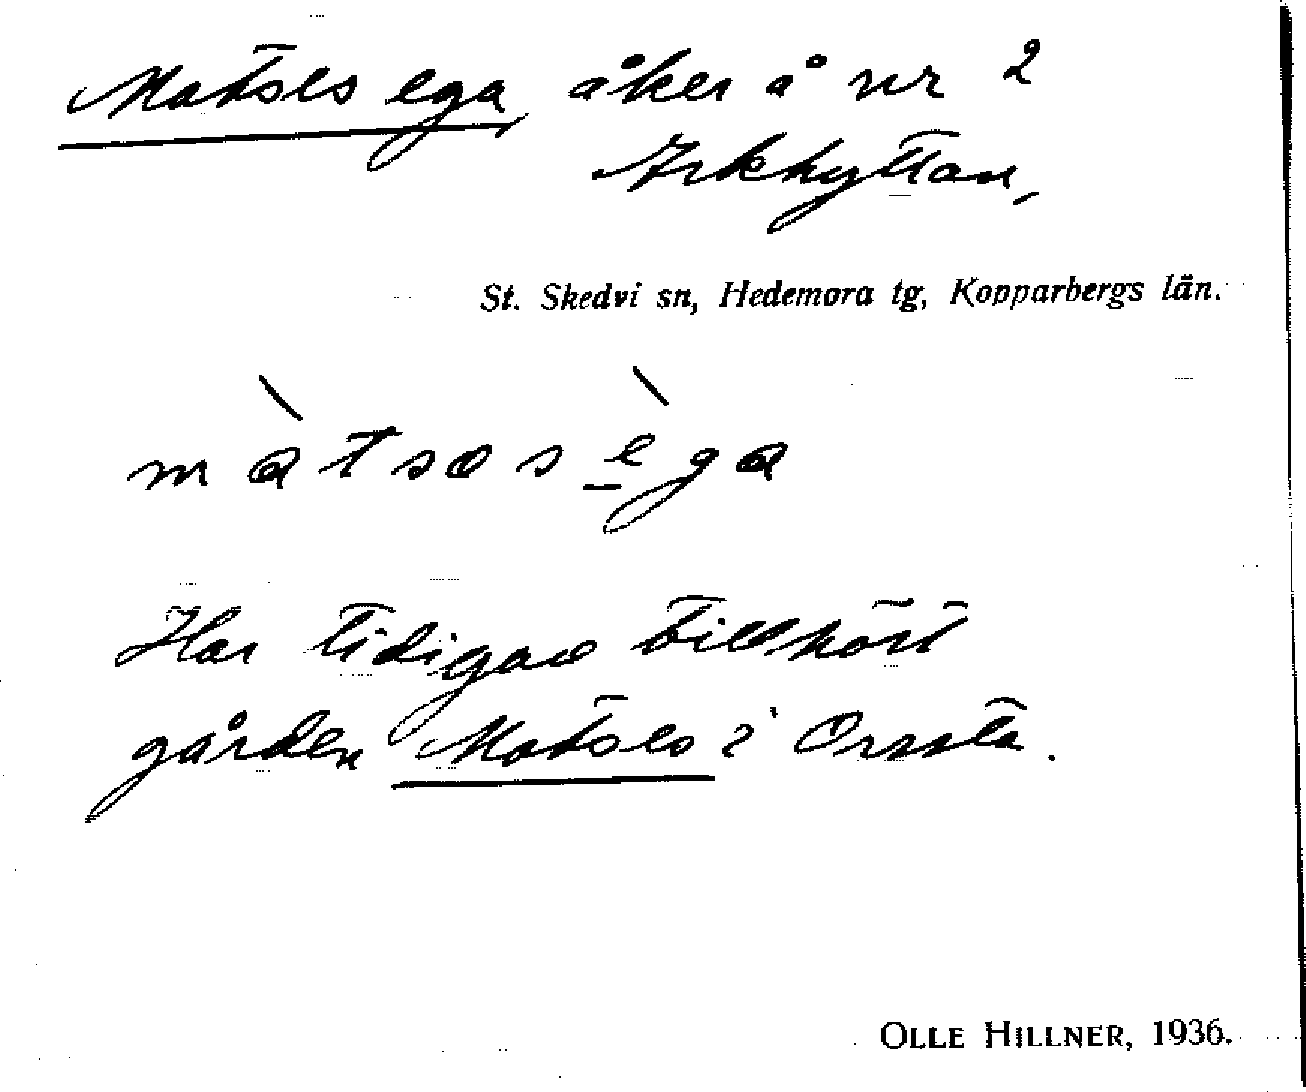 Matses ega, åker å nr 2
Arkhyttan,
St. Skedvi sn, Hedemora tg, Kopparbergs län.
màtsəsèga
Har tidigare tillhört
gården Matses i Orssta.
OLLE HILLNER, 1936.